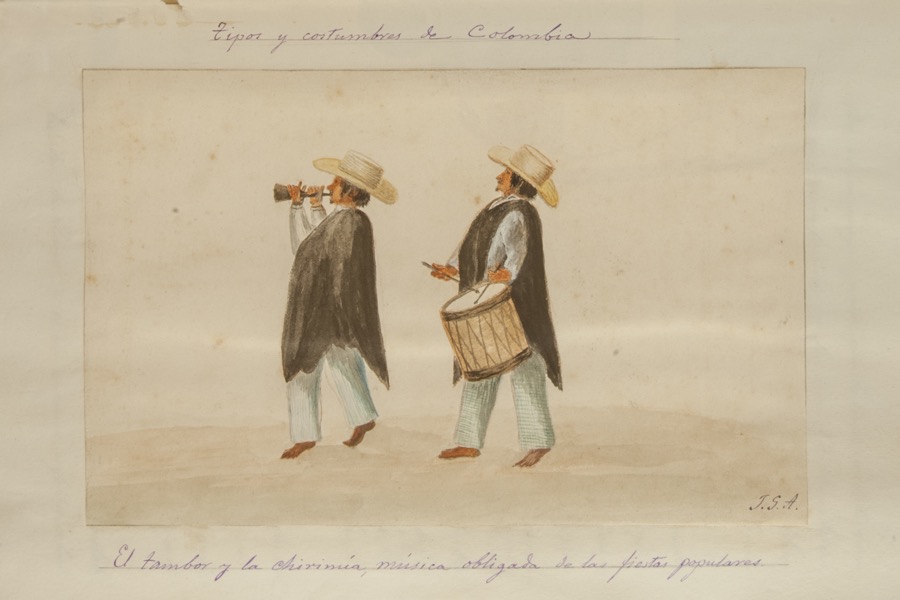 Tipos y costumbres de Colombia
J. G. A.
El tambor y la chirimía, música obligada de las fiestas populares.